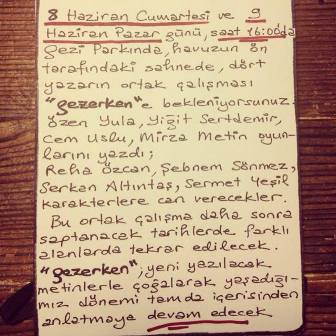 8 Haziran Cumartesi ve 9
Haziran Pazar günü, saat 16:00'da
Gezi Parkında, havuzun ön
tarafındaki sahnede, dört
yazarın ortak çalışması
"gezerken"e bekleniyorsunuz.
Özen Yula, Yiğit Sertdemir,
Cem Uslu, Mirza Metin oyun-
larını yazdı;
Reha Özcan, Şebnem Sönmez,
Serkan Altıntaş, Sermet Yeşil
karakterlere can verecekler.
Bu ortak çalışma daha sonra
saptanacak tarihlerde farklı
alanlarda tekrar edilecek.
"gezerken"; yeni yazılacak
metinlerle çoğalarak yaşadığı-
mız dönemi tamda içerisinden
anlatmaya devam edecek